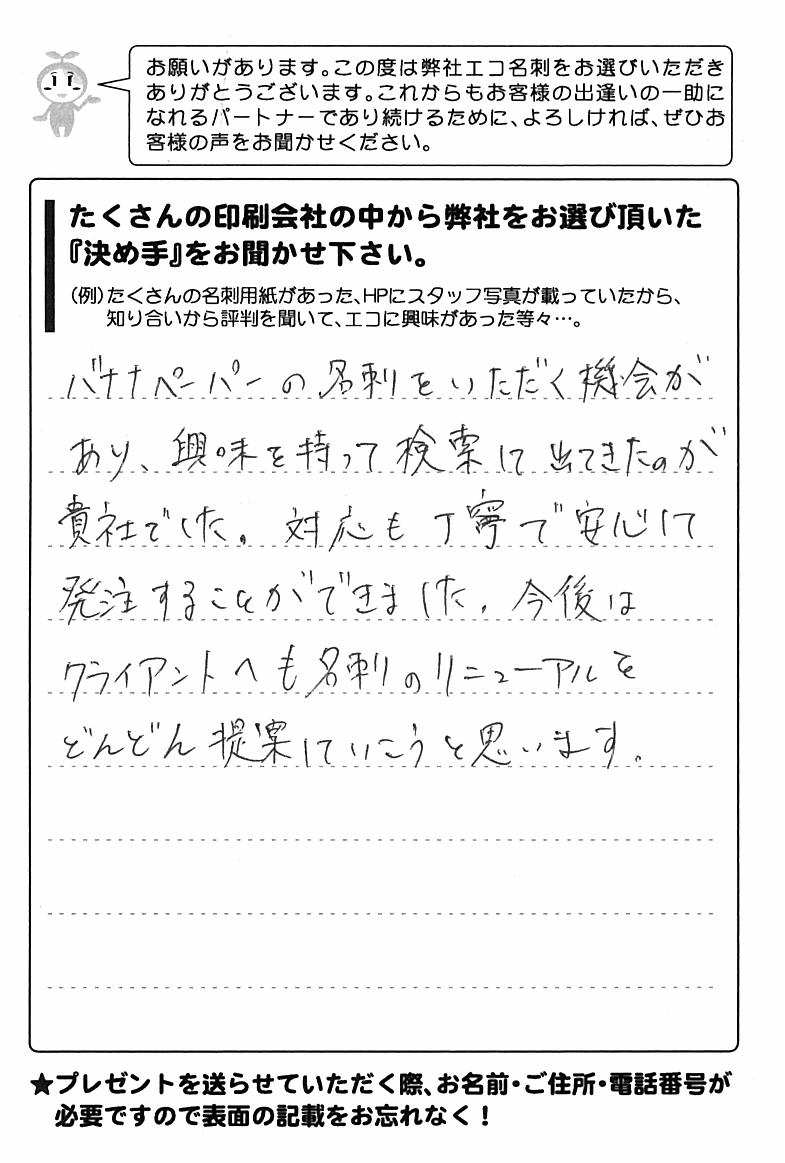 お願いがあります。この度は弊社エコ名刺をお選びいただき
ありがとうございます。これからもお客様の出逢いの一助に
なれるパートナーであり続けるために、よろしければ、ぜひお
客様の声をお聞かせください。
たくさんの印刷会社の中から弊社をお選び頂いた
『決め手』をお聞かせ下さい。
(例)たくさんの名刺用紙があった、HPにスタッフ写真が載っていたから、
知り合いから評判を聞いて、エコに興味があった等々…。
バナナペーパーの名刺をいただく機会が
あり、興味を持って検索して出てきたのが
貴社でした。対応も丁寧で安心して
発注することができました。今後は
クライアントへも名刺のリニューアルを
どんどん提案していこうと思います。
★プレゼントを送らせていただく際、お名前・ご住所・電話番号が
必要ですので表面の記載をお忘れなく！